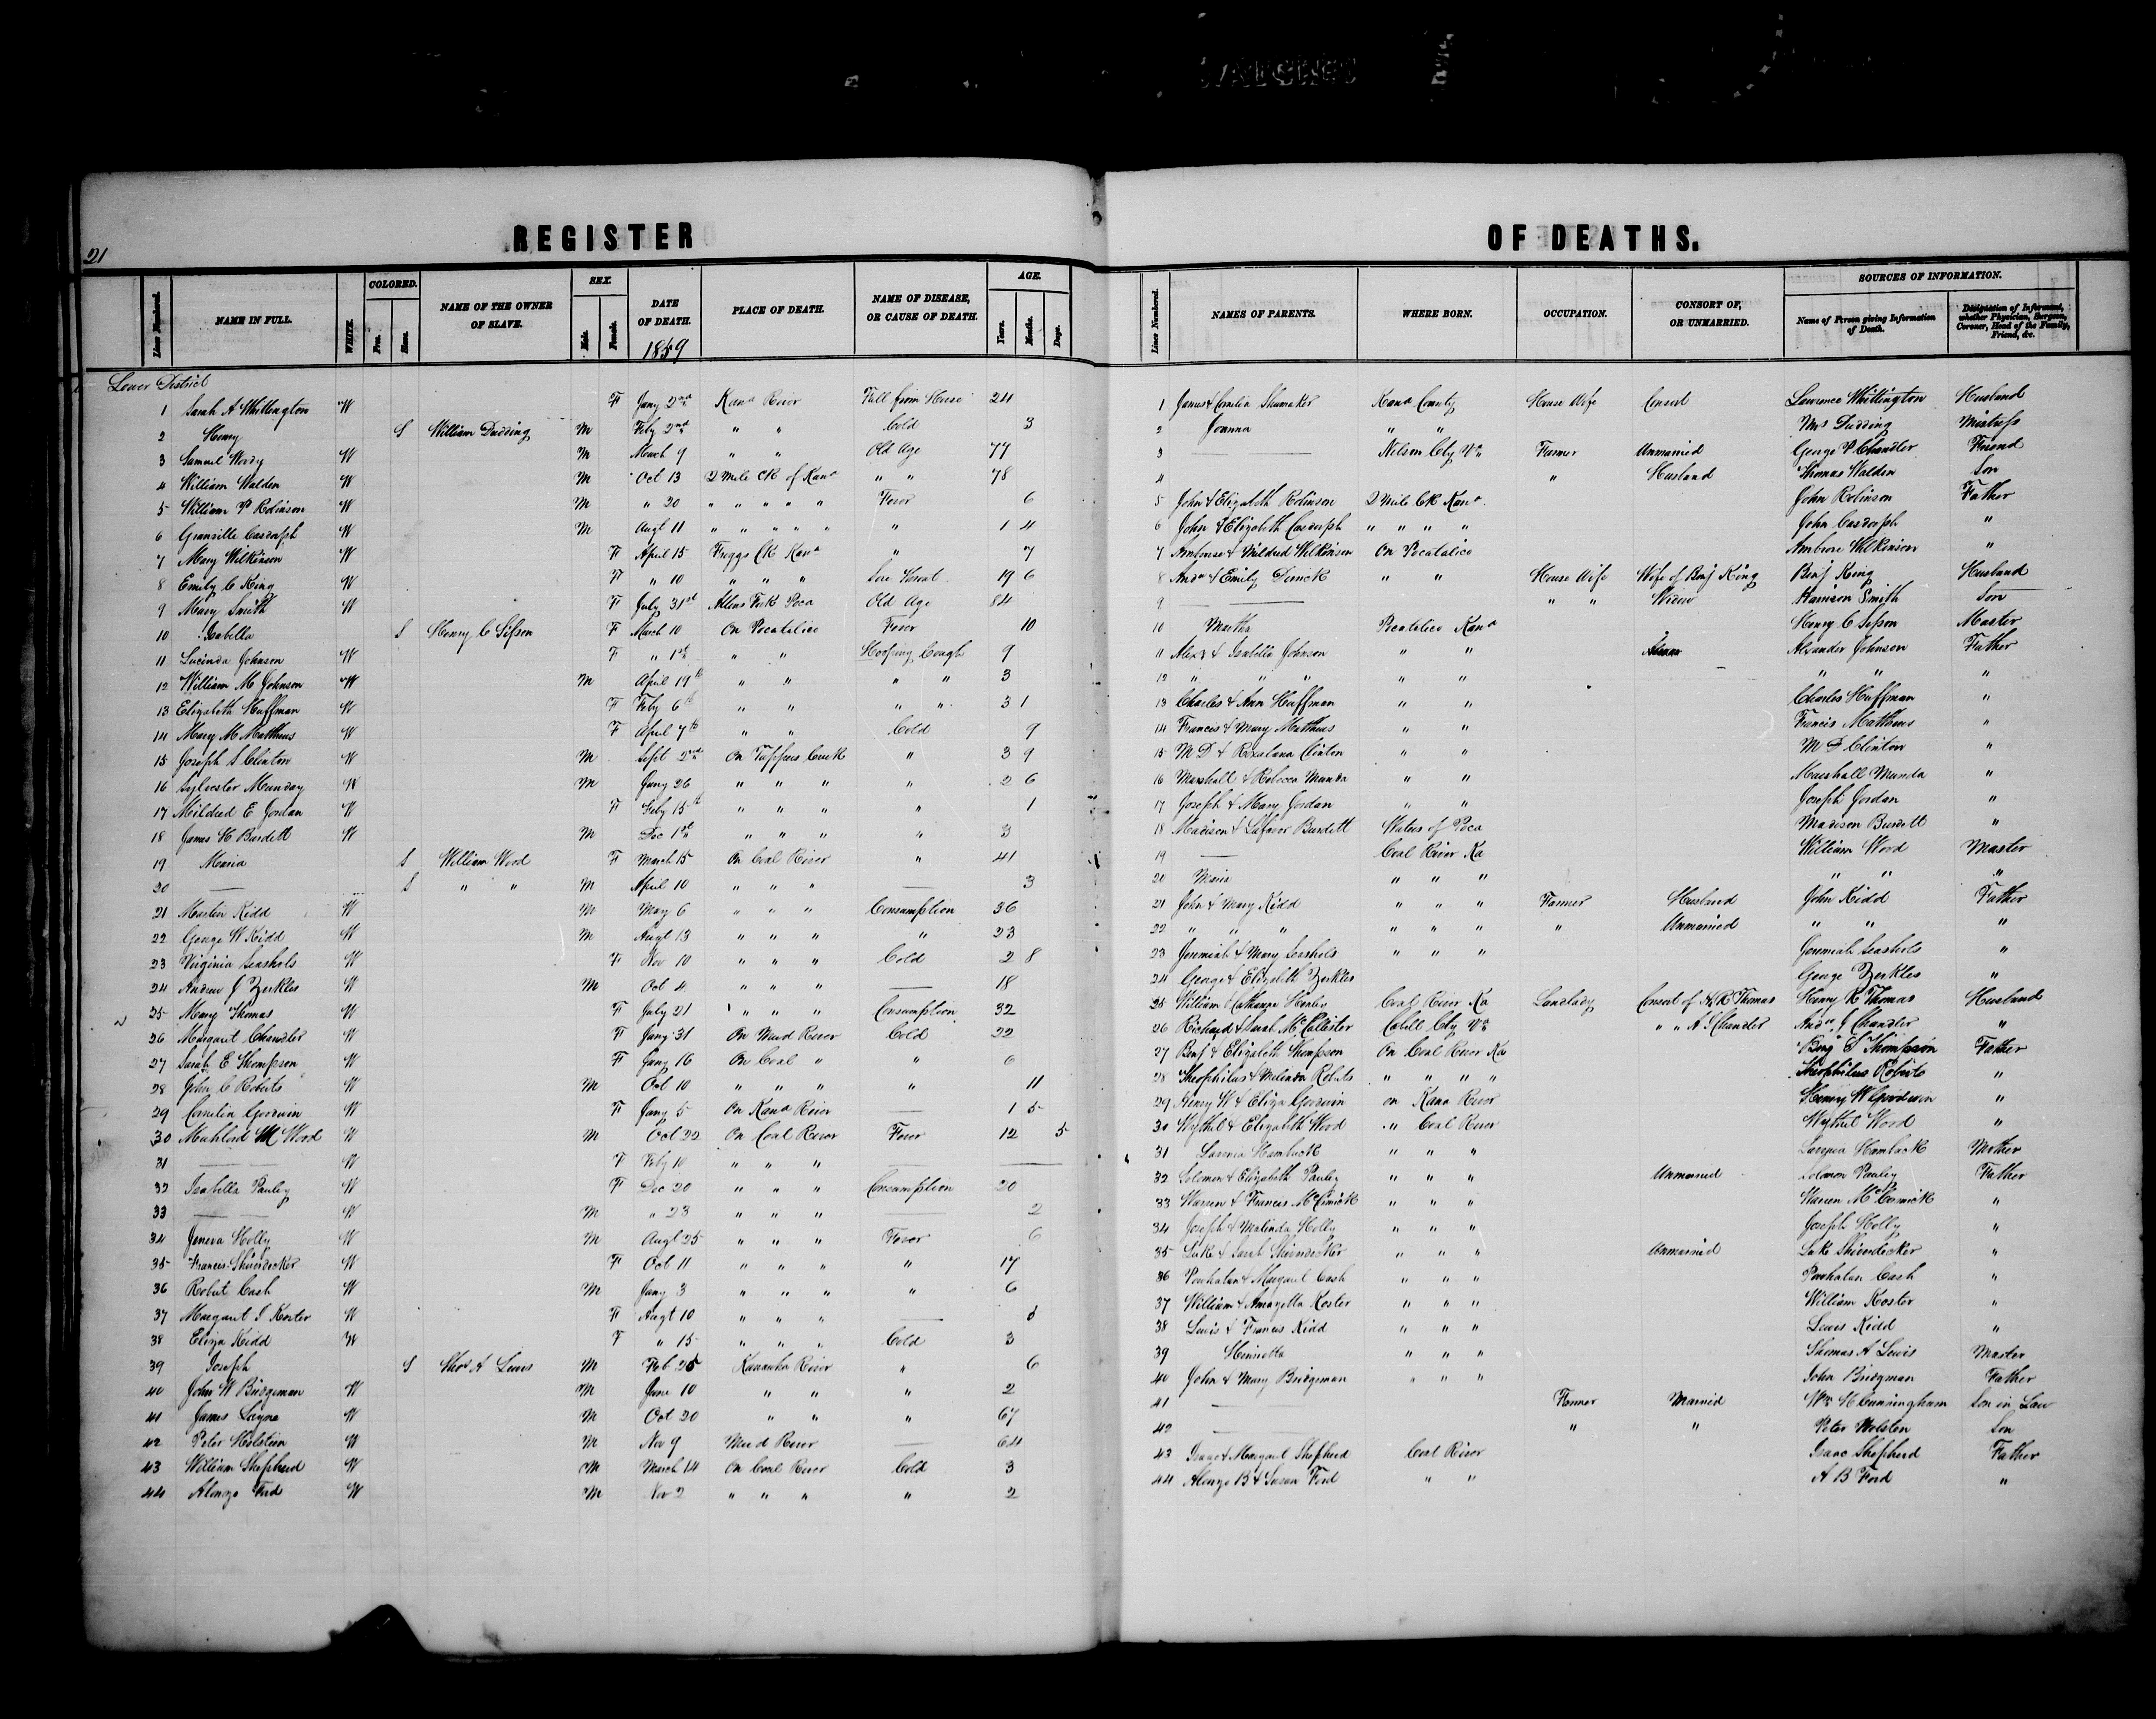 21
REGISTER OF DEATHS.
Lines Numbered. NAME IN FULL. WHITE. COLORED. Free. Slave. NAME OF THE OWNER OF SLAVE. SEX. Male. Female. DATE OF DEATH. 1859 PLACE OF DEATH. NAME OF DISEASE, OR CAUSE OF DEATH. AGE. Years. Months. Days. Lines Numbered. NAMES OF PARENTS. WHERE BORN. OCCUPATION. CONSORT OF, OR UNMARRIED. SOURCES OF INFORMATION. Name of Person giving Information of Death. Designation of Informant, whether Physician, Surgeon, Coroner, Head of the Family, Friend, &c.
Lower District
1 Sarah A Whittington W F Jany 2nd Kana River Fall from House 24 1 James & Cornelia Shumaker Kana County House Wife Consort Lawrence Whittington Husband
2 Henry S William Dudding M Feby 2nd " " Cold 3 2 Joanna " " Mrs Dudding Mistress
3 Samuel Woody W M March 9 " " Old Age 77 3 Nelson Cty Va Farmer Unmarried George P Chandler Friend
4 William Walden W M Oct 13 2 Mile CK of Kana " " 78 4 " Husband Thomas Walden Son
5 William P Robinson W M " 20 " " " " " Fever 6 5 John & Elizabeth Robinson 2 Mile CK Kana John Robinson Father
6 Granville Casdorph W M Augt 11 " " " " " " 1 4 6 John & Elizabeth Casdorph " " " " John Casdorph "
7 Mary Wilkinson W F April 15 Fraggs CK Kana " 7 7 Ambrose & Mildred Wilkinson On Pocatalico Ambrose Wilkinson "
8 Emily C King W F " 10 " " " Sore Throat 19 6 8 Andw & Emily Derrick " " House Wife Wife of Benj King Benj King Husband
9 Mary Smith W F July 31st Allens Fork Poca Old Age 84 9 " " Widow Harrison Smith Son
10 Isabella S Henry C Sisson F March 10 On Pocatalico Fever 10 10 Martha Pocatalico Kana Henry C Sisson Master
11 Lucinda Johnson W F " 1st " " Hooping Cough 9 11 Alexr & Isabella Johnson " " Alexander Johnson Father
12 William M Johnson W M April 19th " " " " 3 12 " " " " " " " "
13 Elizabeth Huffman W F Feby 6th " " " " 3 1 13 Charles & Ann Huffman " " Charles Huffman "
14 Mary M Matthews W F April 7th " " Cold 9 14 Francis & Mary Matthews " " Francis Matthews "
15 Joseph S Clinton W M Sept 2nd On Tuppers Creek " 3 9 15 M D & Roxalana Clinton " " M D Clinton "
16 Sylvester Munday W M Jany 26 " " " " 2 6 16 Marshall & Rebecca Munda " " Marshall Munda "
17 Mildred E Jordan W F Feby 15th " " " " 1 17 Joseph & Mary Jordan " " Joseph Jordan "
18 James H Burdett W M Dec 1st " " " " 3 18 Madison & Burdett Waters of Poca Madison Burdett "
19 Maria S William Wood F March 15 On Coal River " 41 19 Coal River Ka William Wood Master
20 S " " M April 10 " " " 3 20 Maria " " " " " "
21 Martin Kidd W M May 6 " " " Consumption 36 21 John & Mary Kidd " " " Farmer Husband John Kidd Father
22 George W Kidd W M Augt 13 " " " " 23 22 " " " " " " " Unmarried " " "
23 Virginia Seashols W F Nov 10 " " " Cold 2 8 23 Jeremiah & Mary Seashols " " " Jeremiah Seashols "
24 Andrew J Zerkles W M Oct 4 " " " 18 24 George & Elizabeth Zerkles George Zerkles "
25 Mary Thomas W F July 21 " " " Consumption 32 25 William & Catharine Coal River Ka Landlady Consort of H R Thomas Henry R Thomas Husband
26 Margaret Chandler W F Jany 31 On Mud River Cold 22 26 Richard & Sarah McCallister Cabell Cty Va " " A J Chandler Andw J Chandler "
27 Sarah E Thompson W F Jany 16 On Coal " " 6 27 Benj & Elizabeth Thompson On Coal River Ka Benj S Thompson Father
28 John C Roberts W M Oct 10 " " " " 11 28 Theophilus & Melinda Roberts " " " " Theophilus Roberts "
29 Cornelia Goodwin W F Jany 5 On Kana River 1 5 29 Henry W & Eliza Goodwin on Kana River Henry W Goodwin "
30 Mahlord M Wood W M Oct 22 On Coal River Fever 12 5 30 Wythel & Elizabeth Wood " Coal River Wythel Wood "
31 W F Feby 10 " " " 31 Hambuck " " " Hambuck Mother
32 Isabella Pauley W F Dec 20 " " " Consumption 20 32 Solomon & Elizabeth Pauley " " " Unmarried Solomon Pauley Father
33 W M " 23 " " " 2 33 Warren & Frances McCormick " " " Warren McCormick "
34 Geneva Holly W M Augt 25 " " " Fever 6 34 Joseph & Malinda Holly " " " Joseph Holly "
35 Frances Shiverdecker W F Oct 11 " " " " 17 35 Luke & Sarah Shiverdecker " " " Unmarried Luke Shiverdecker "
36 Robert Cash W M Jany 3 " " " " 6 36 Powhatan & Margaret Cash " " " Powhatan Cash "
37 Margaret J Koster W F Augt 10 " " " 37 William & Amazetta Koster " " " William Koster "
38 Eliza Kidd W F " 15 " " " Cold 3 38 Lewis & Frances Kidd " " " Lewis Kidd "
39 Joseph S Thos A Lewis M Feb 25 Kanawha River " 6 39 Henrietta " " " Thomas A Lewis Master
40 John W Bridgeman W M June 10 " " " 2 40 John & Mary Bridgeman " " " John Bridgman Father
41 James Layne W M Oct 20 " " " 67 41 Farmer Married Wm H Cunningham Son in Law
42 Peter Holstein W M Nov 9 Mud River 64 42 " " Peter Holsten Son
43 William Shepherd W M March 14 On Coal River Cold 3 43 Isaac & Margaret Shepherd Coal River Isaac Shepherd Father
44 Alonzo Ford W M Nov 2 " " " " 2 44 Alonzo B & Susan Ford " " A B Ford "